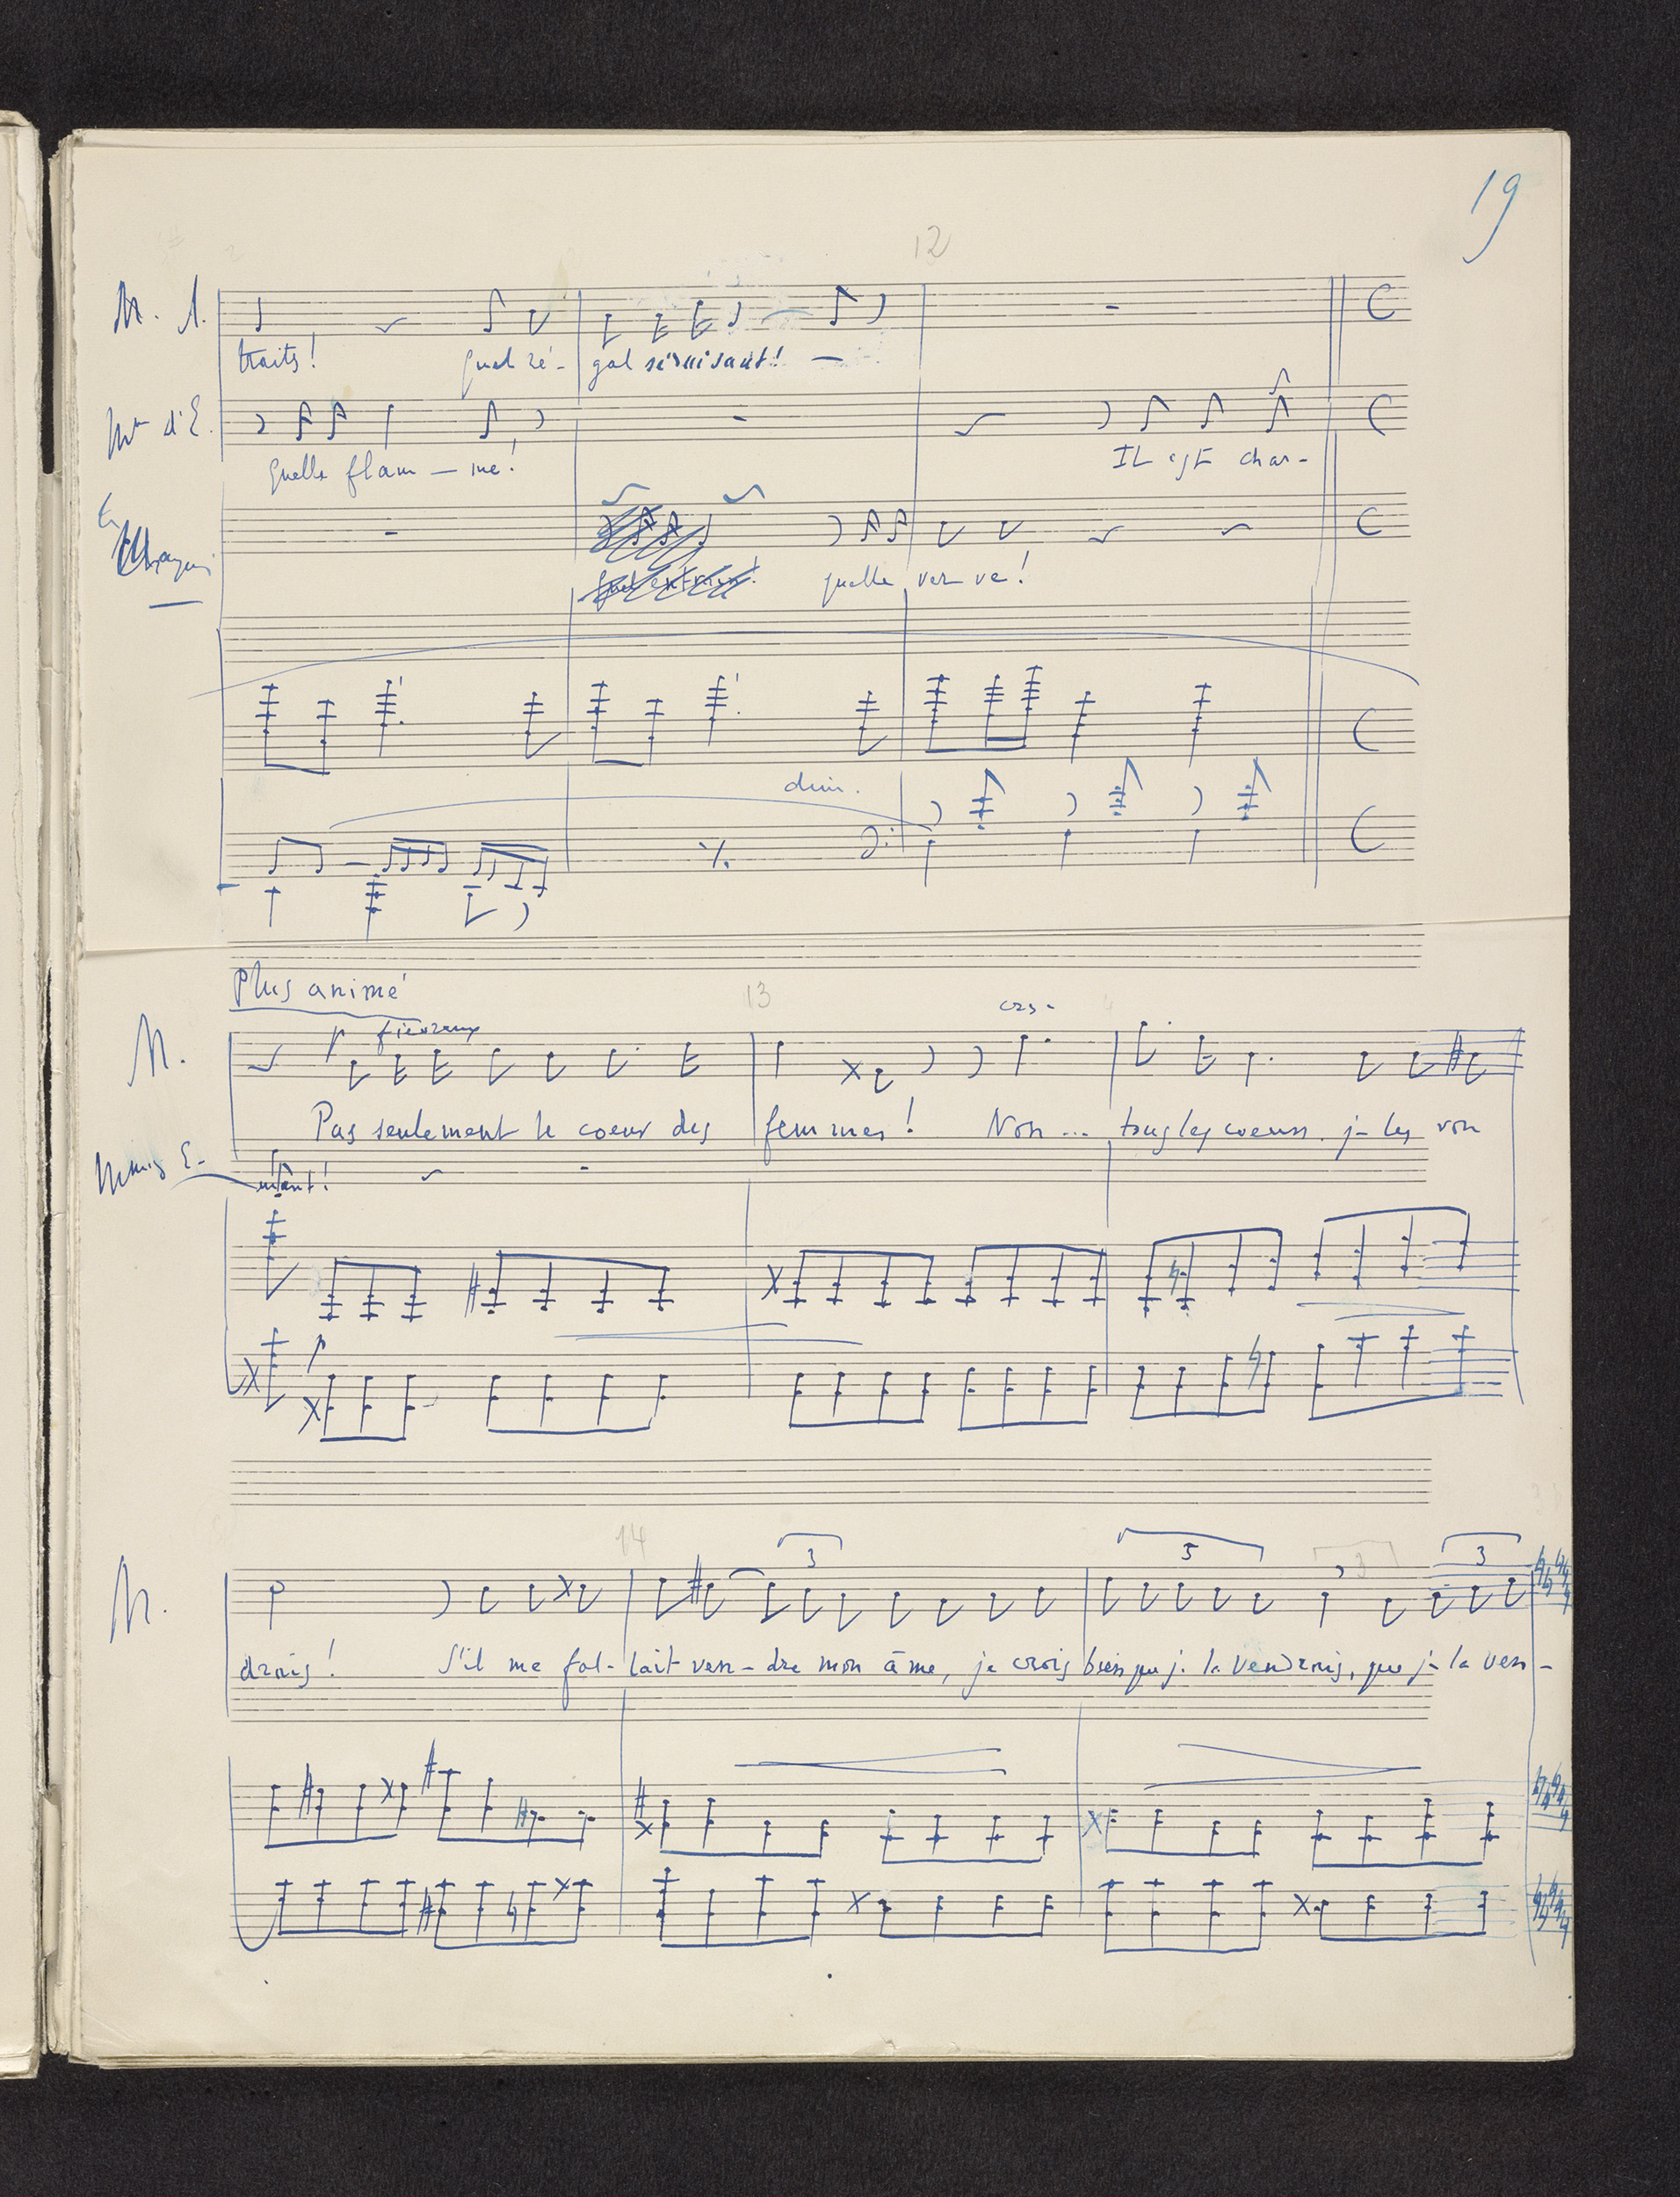 19
12
M.
traits! quel ré- gal séduisant! —
Me d'E.
Quelle flam — me! Il est char-
quelle ver ve!
dim.
Plus animé
13
M.
fiévreux
Pas seulement le coeur des femmes! Non... tous les coeurs je les vou
E.
mant!
14
3 5 3 3
M.
drais! S'il me fal- lait ven- dre mon âme, je crois bien que je la vendrais, que je la ven-